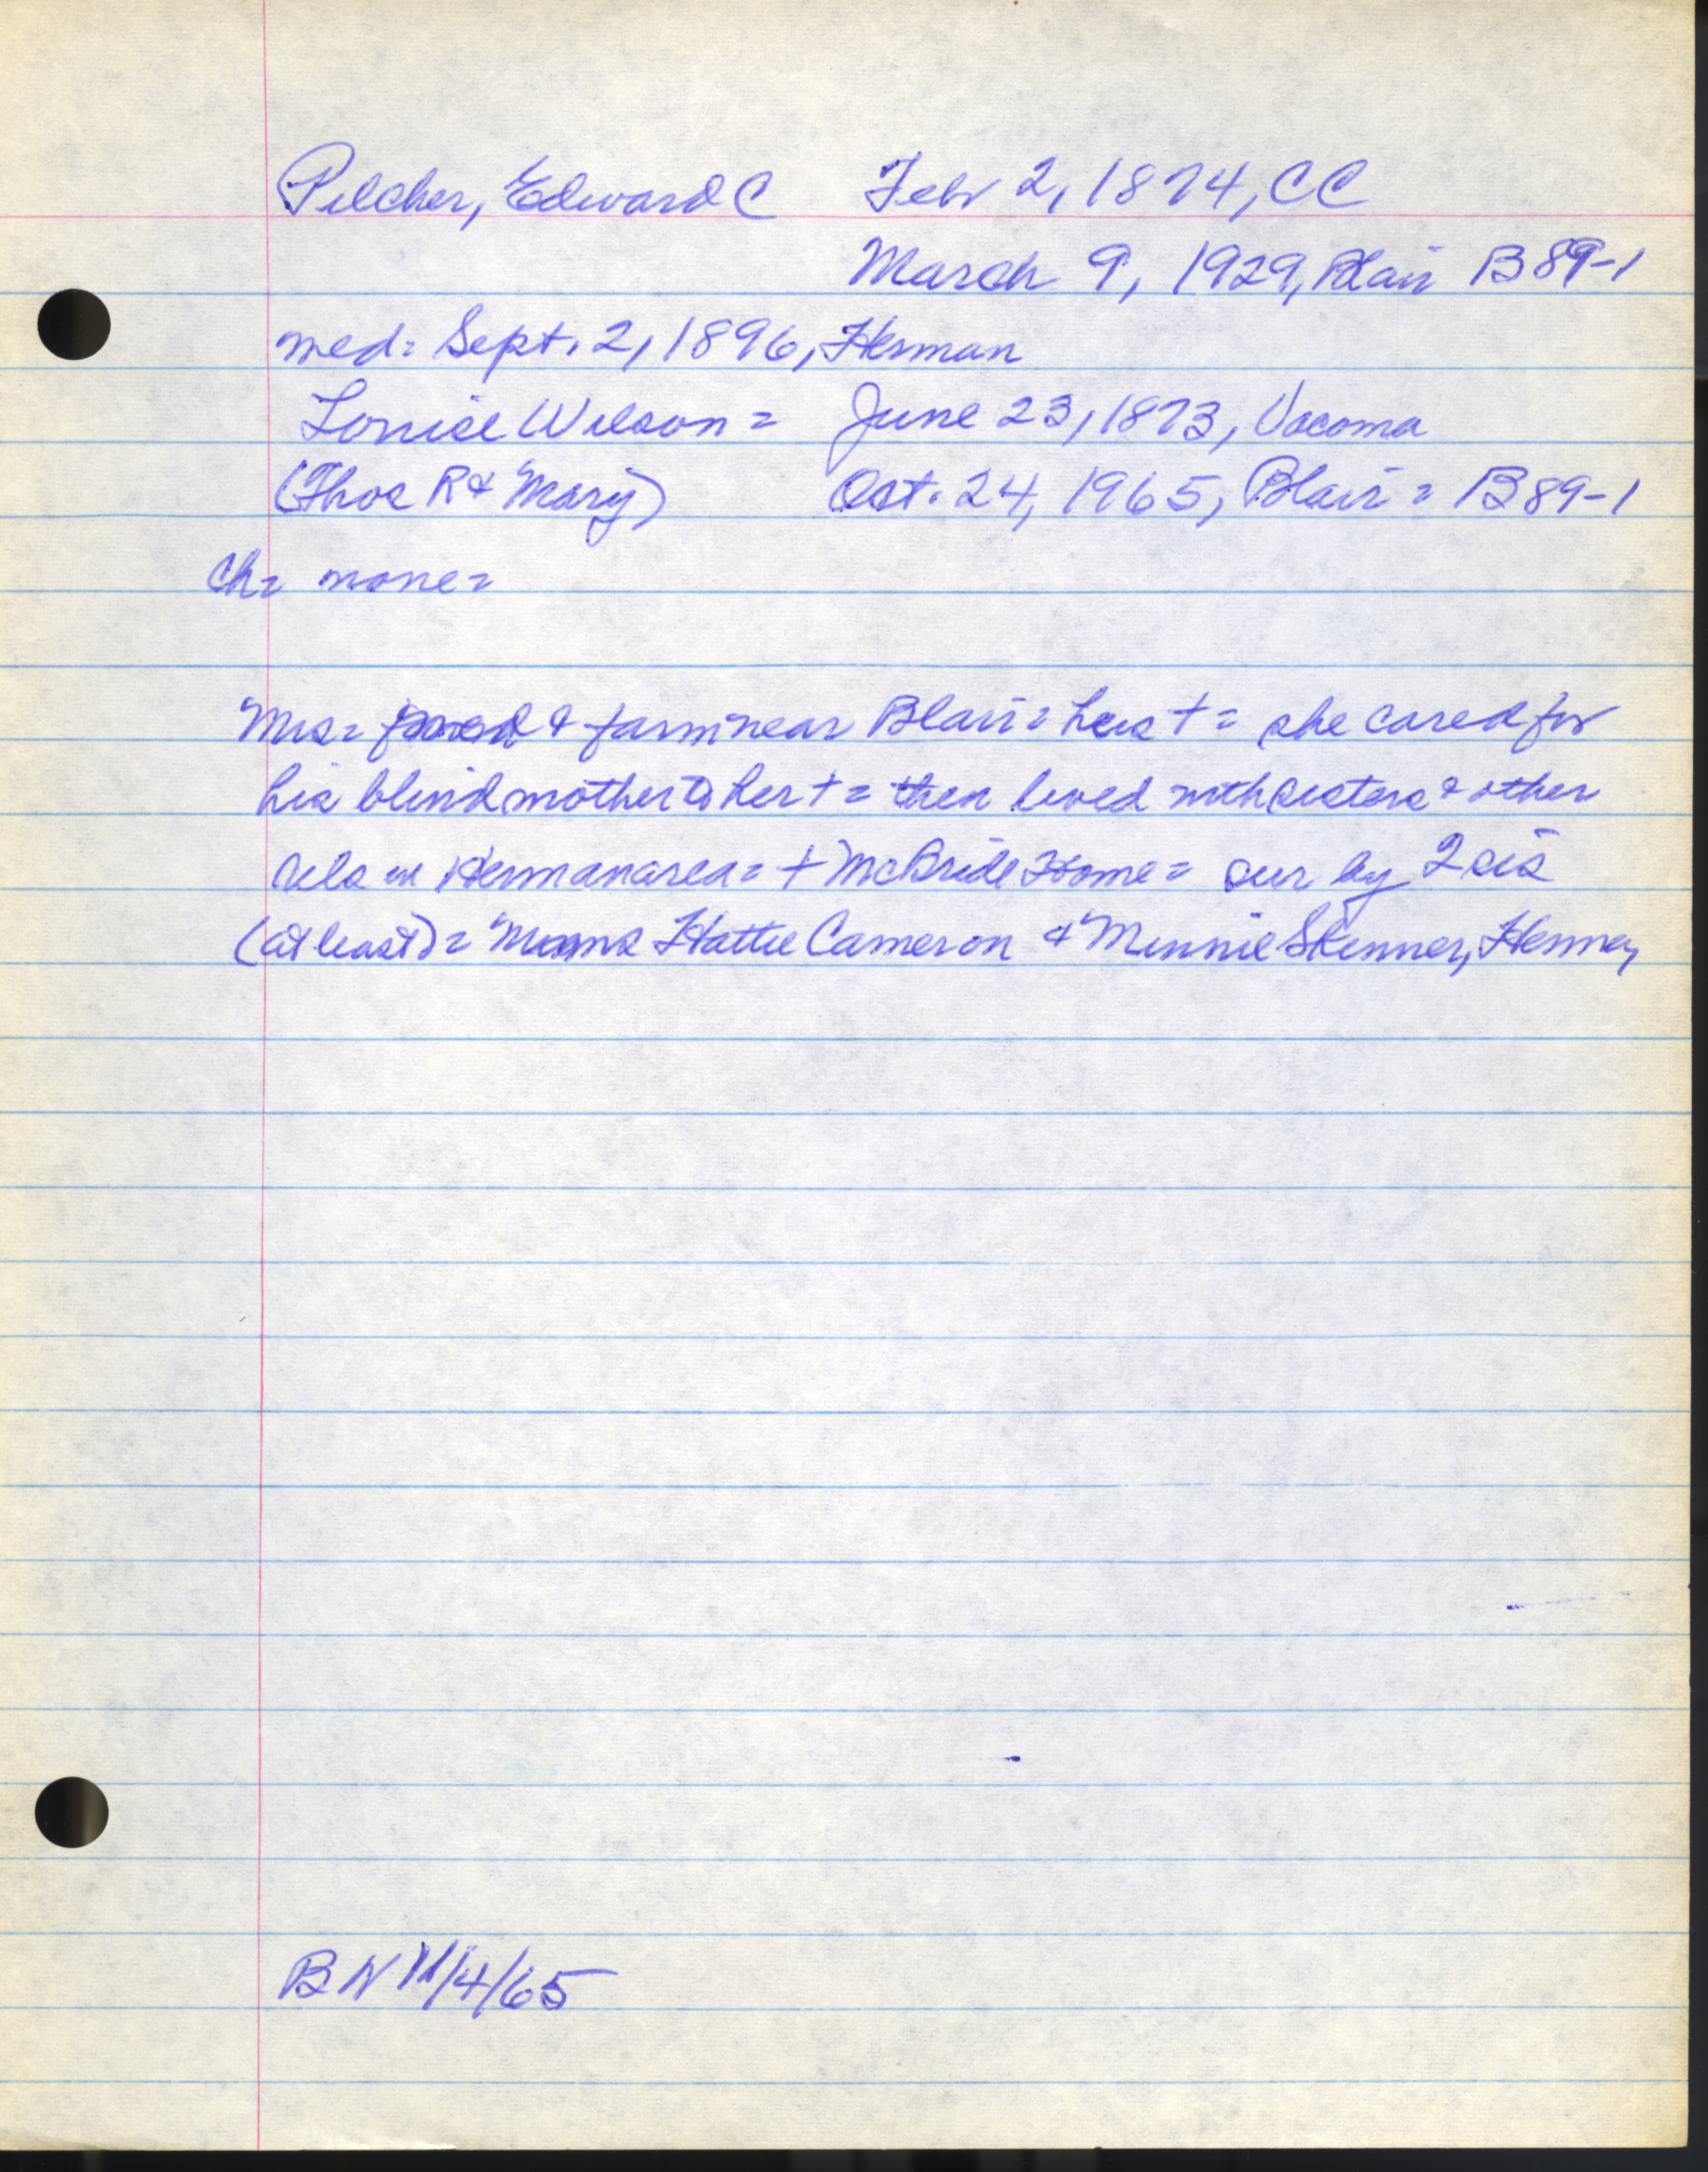 Pilcher, Edward C Febr 2, 1874, CC
March 9, 1929, Blair B 89-1
med: Sept. 2, 1896, Herman
Louise Wilson = June 23, 1873, Vacoma
(Thos R & Mary) Oct. 24, 1965, Blair = B 89-1
Ch= none=
Mrs= & farm near Blair = his + = she cared for
his blind mother to her + = then lived with sisters & other
rels in Herman area = + McBride Home = sur by 2 sis
(at least) = Hattie Cameron & Minnie Skinner,
BN 11/4/65